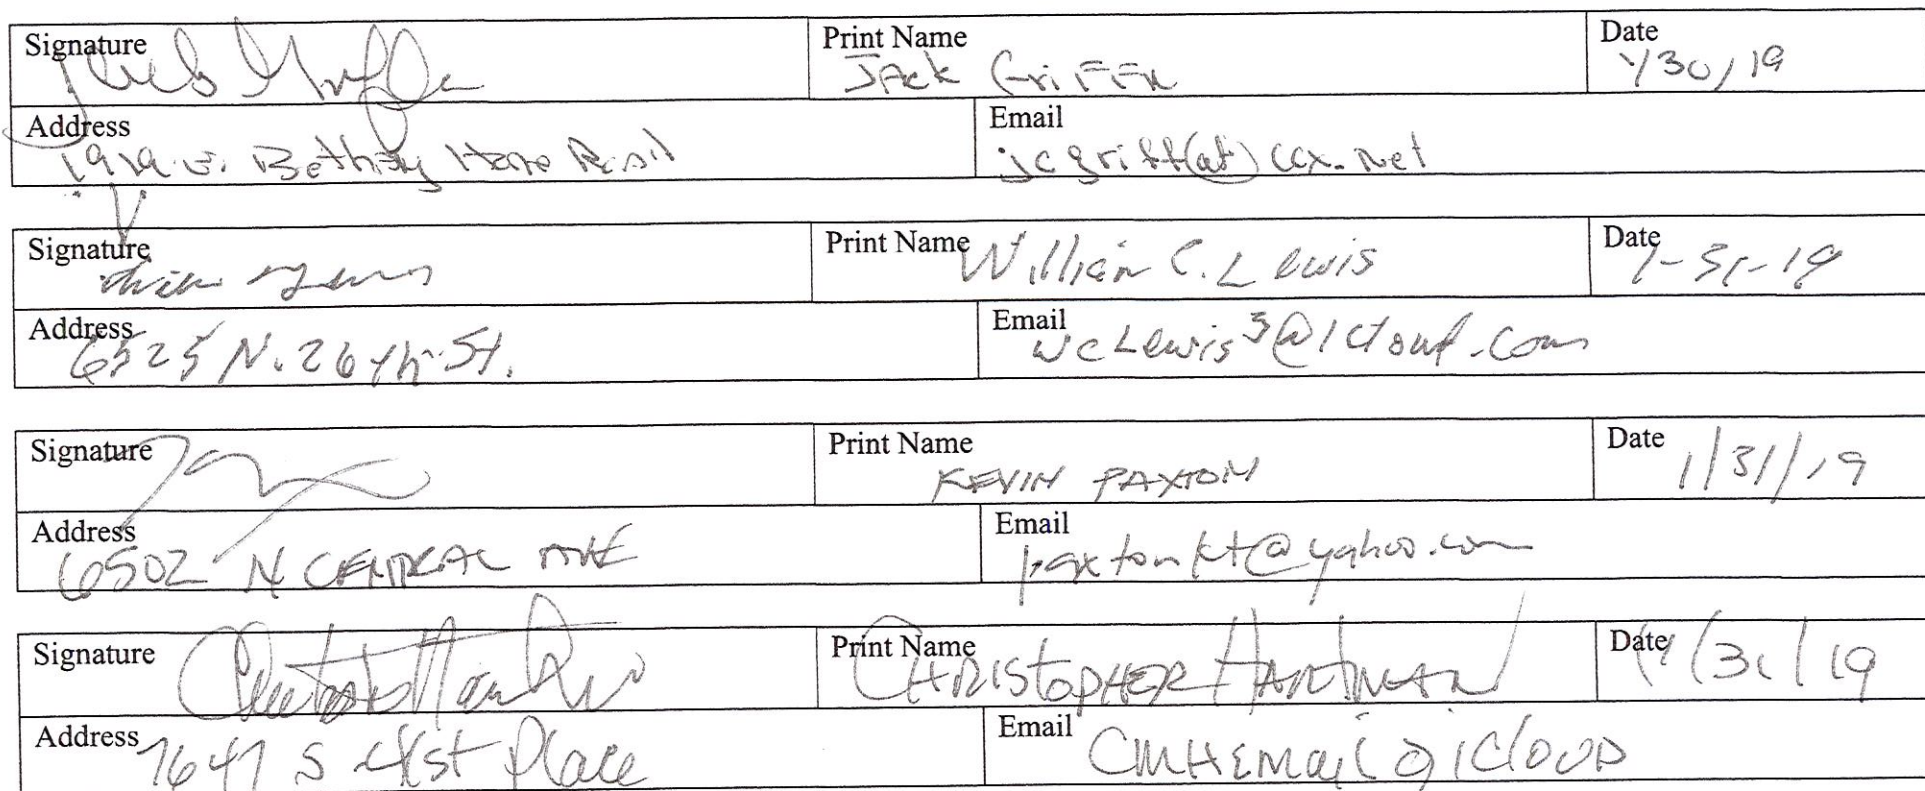 Signature Print Name Jack Griffin Date 1/30/19
Address 1919 E. Bethany Home Road Email jcgriff(at)ccx.net
Signature Print Name William C. Lewis Date 1-31-19
Address 6525 N. 26th St. Email wcLewis3@icloud.com
Signature Print Name KEVIN PAXTON Date 1/31/19
Address 6502 N CENTRAL AVE Email paxtonkt@yahoo.com
Signature Print Name CHRISTOPHER HARTMAN Date 1/31/19
Address 7647 S 41st Place Email CMHEMail@iCLOUD